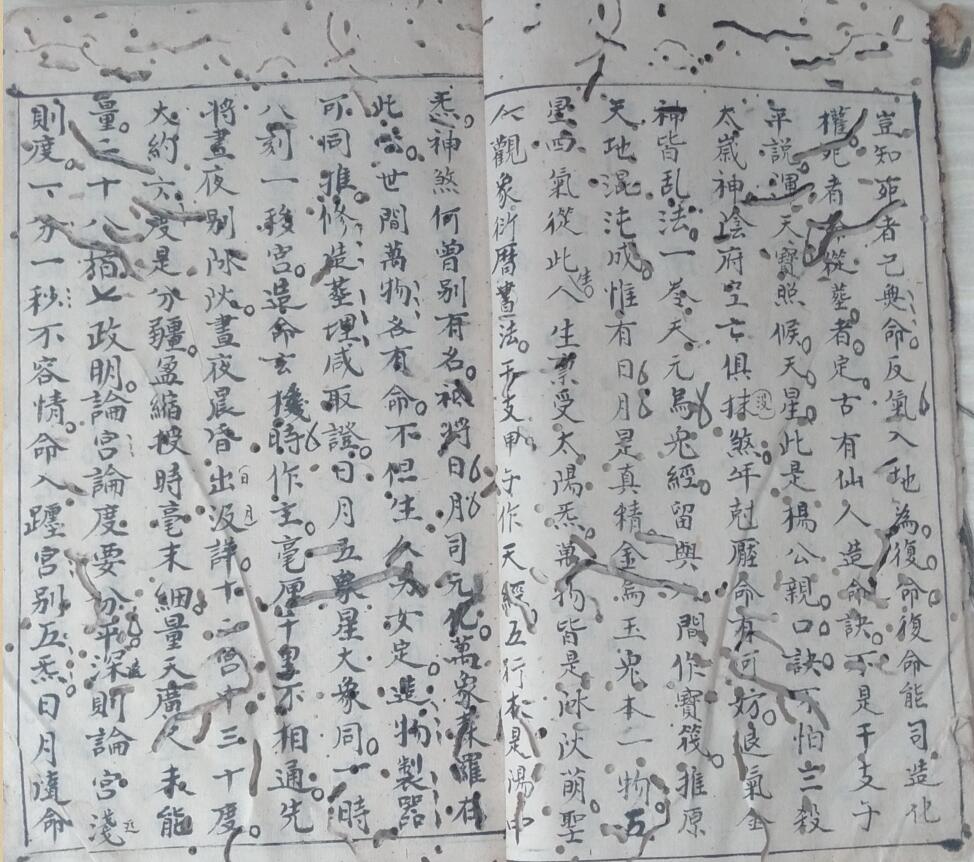 豈知死者已無命反氣入地為復命復命能司造化
權死者從塟者定古有仙人造命訣不是干支子
平說渾天寶照候天星此是楊公親口訣不怕三殺
太歲神陰府空亡俱抹煞年尅壓命有何妨良氣金
神皆乱法一卷天元烏兔經留與間作寶筏推原
天地混沌成惟有日月是真精金烏玉兔本一物五
星四氣從此人生稟受太陽炁萬物皆是冰泮萌聖
人觀象衍曆書法干支甲子作天經五行本是湯中
炁神煞何曾别有名祗將日月司元化萬象森羅在
此公世間萬物各有命不但生人男女定造物製器
可同推修造塟埋咸取證日月五㬌星大象同一時
八刻一移宫造命玄機時作主毫厘千里不相通先
將晝夜别陰陽晝夜晨昏出没詳十二宫中三十度
大約六度是分疆盈縮授時毫末細量天廣尺未能
量二十八宿七政明論宫論度要分平深則論宫淺
則度一分一秒不容情命入躔宫别五炁日月隨命